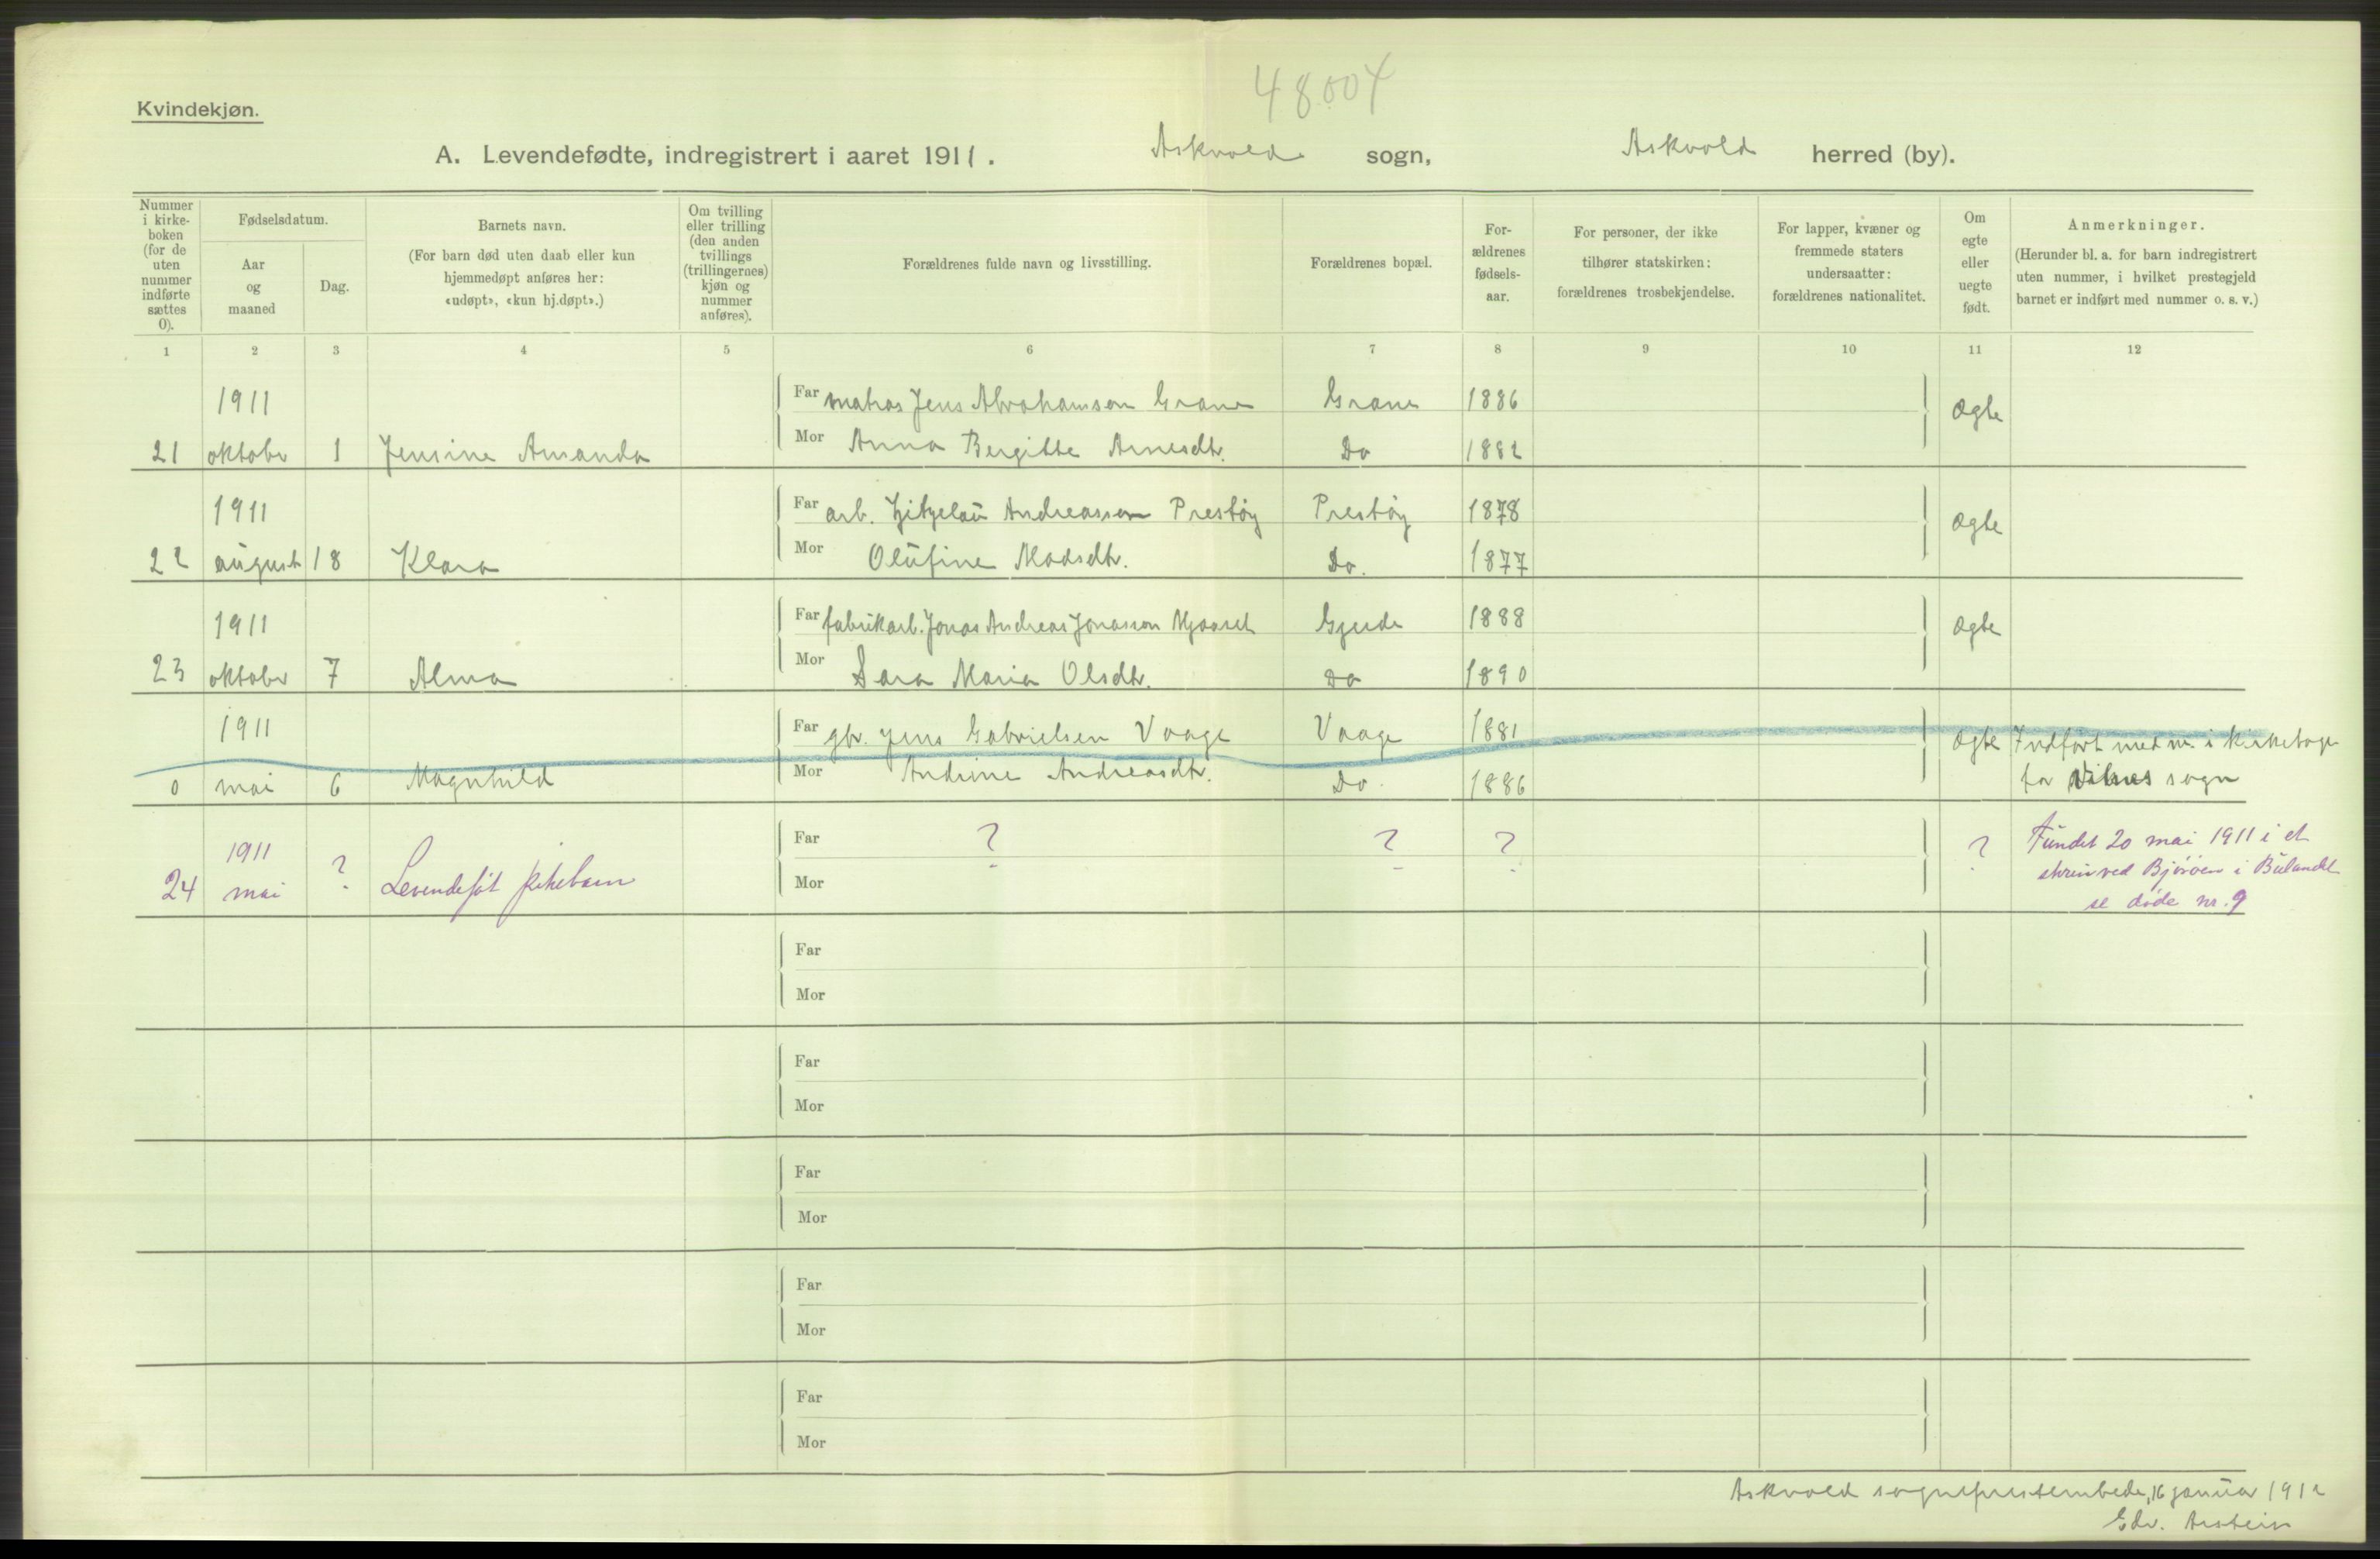 48004
Kvindekjøn.
A. Levendefødte, indregistrert i aaret 1911. Askvold sogn, Askvold herred (by).
Nummer i kirke-boken (for de uten nummer indførte sættes 0).
Fødselsdatum.
Aar og maaned
Dag.
Barnets navn.
(For barn død uten daab eller kun hjemmedøpt anføres her: «udøpt», «kun hj.døpt».)
Om tvilling eller trilling (den anden tvillings (trillingernes) kjøn og nummer anføres).
Forældrenes fulde navn og livsstilling.
Forældrenes bopæl.
For-ældrenes fødsels-aar.
For personer, der ikke tilhører statskirken: forældrenes trosbekjendelse.
For lapper, kvæner og fremmede staters undersaatter: forældrenes nationalitet.
Om egte eller uegte født.
Anmerkninger.
(Herunder bl. a. for barn indregistrert uten nummer, i hvilket prestegjeld barnet er indført med nummer o. s. v.)
1 2 3 4 5 6 7 8 9 10 11 12
1911 Far matros Jens Abrahamson Grane Grane 1886 Ægte
21 oktober 1 Jensine Amanda Mor Anna Bergitte Arnesdtr. Do 1882
1911 Far arb. Andreassen Prestøy Prestøy 1878 Ægte
22 august 18 Klara Mor Olufine Madsdtr. Do. 1877
1911 Far fabrikarb. Jonas Andreas Jonasson Gjerde 1888 Ægte
23 oktober 7 Alma Mor Sara Maria Olsdtr. Do 1890
1911 Far gbr. Jens Gabrielsen Vaage Vaage 1881 Ægte Indført med nr. i kirkeboge
0 mai 6 Magnhild Mor Andrine Andreasdtr. Do. 1886 for Vilnes sogn
1911 Far ? ? ? ? Fundet 20 mai 1911 i et
24 mai ? Levendeføt pikebarn Mor skrin ved Bjørøen i Bulandet
se døde nr. 9
Far
Mor
Far
Mor
Far
Mor
Far
Mor
Far
Mor
Askvold sogneprestembede, 16 januar 1912
Edv.